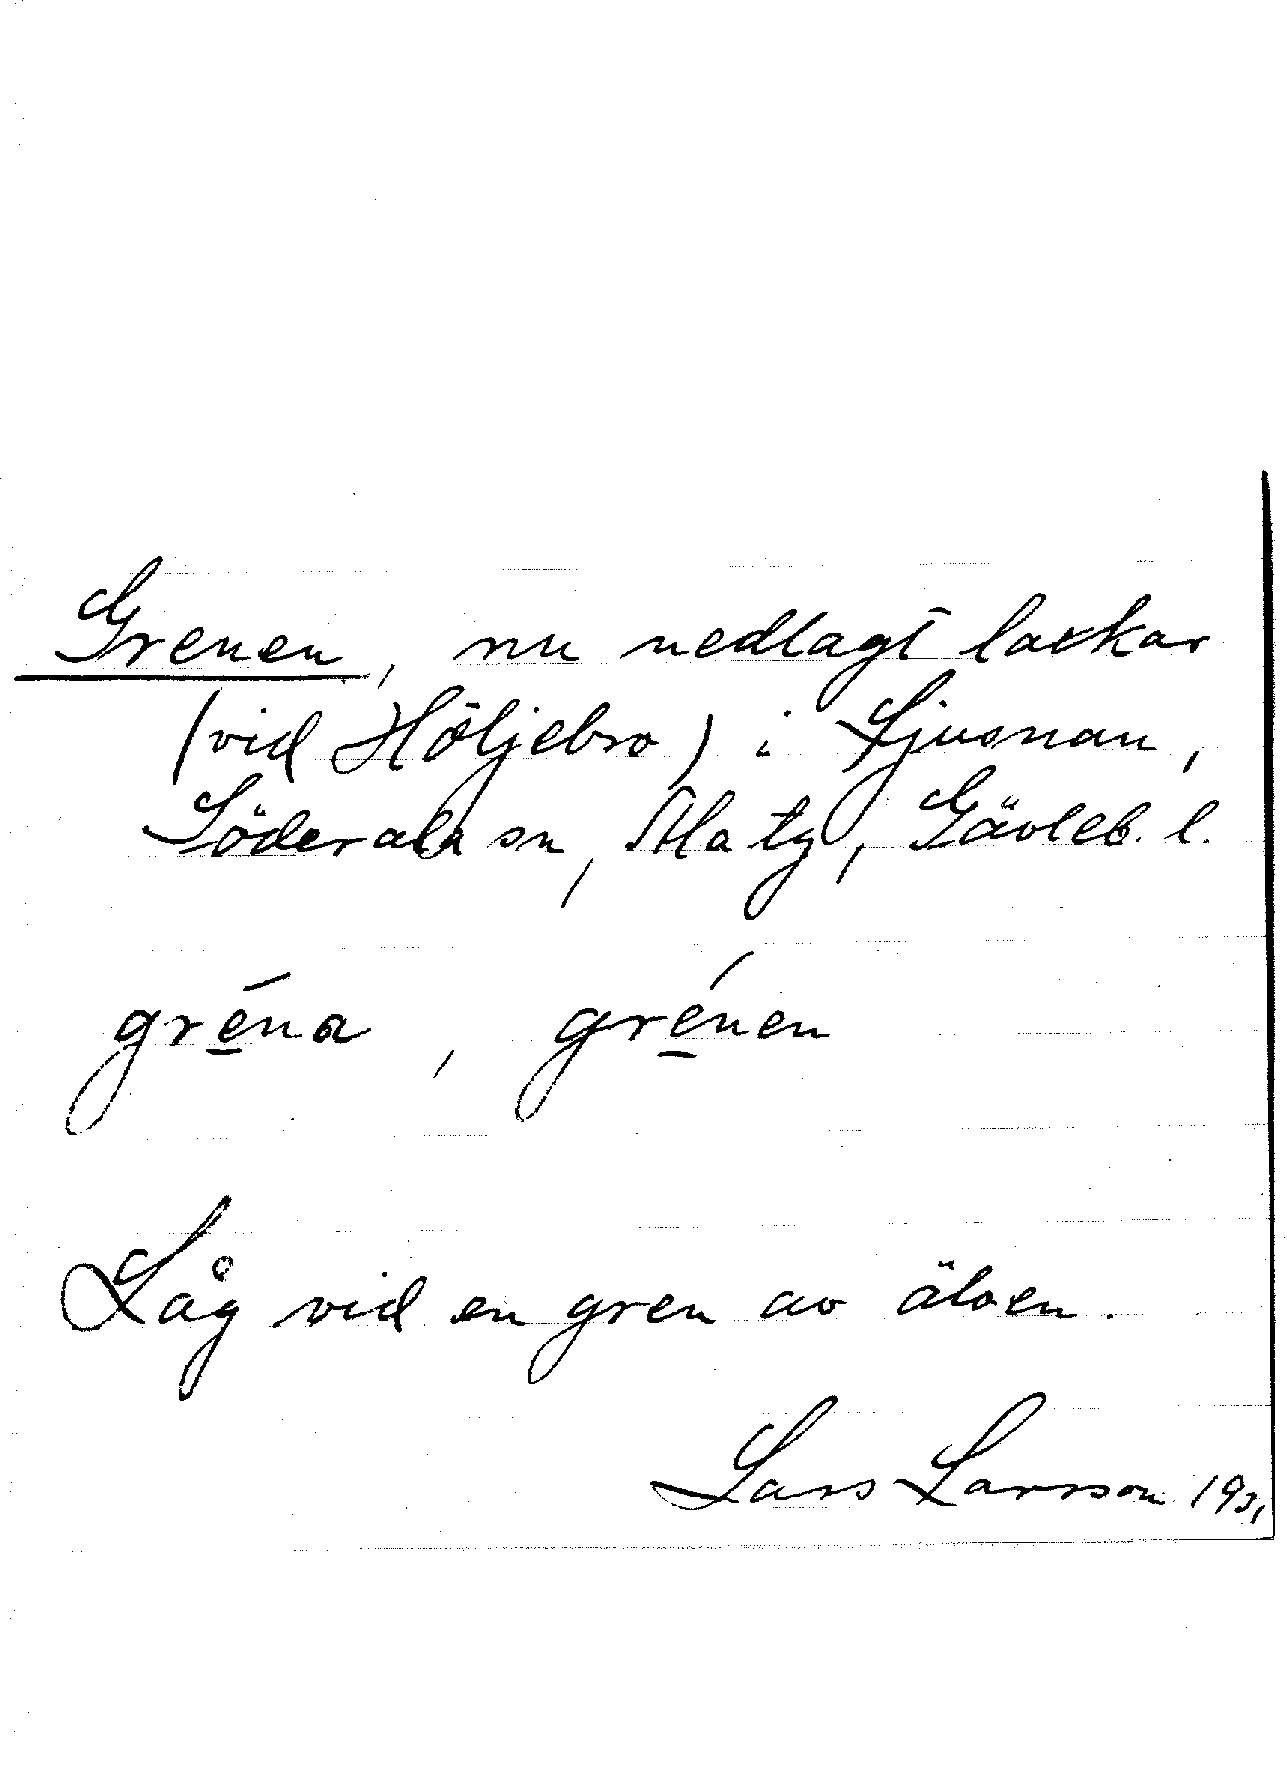 Grenen, nu nedlagt laxkar
(vid Höljebro) i Ljusnan,
Söderala sn, Ala tg, Gävleb. l.
gréna, grénen
Låg vid en gren av älven.
Lars Larsson